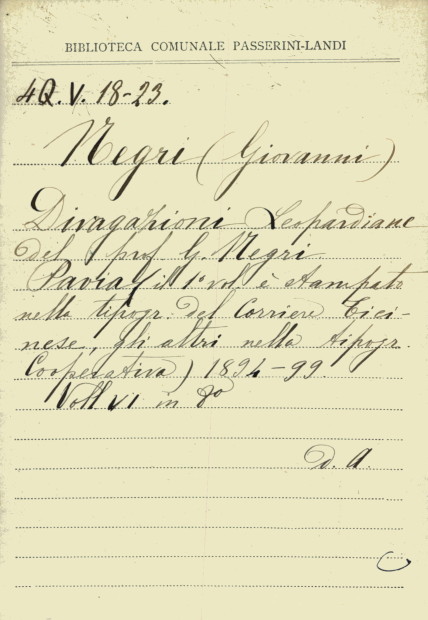 BIBLIOTECA COMUNALE PASSERINI-LANDI
4Q.V. 18-23.
Negri (Giovanni)
Divagazioni Leopardiane
del prof G. Negri
Pavia (il 1º vol. è stampato
nella tipogr. del Corriere Tici-
nese, gli altri nella tipogr.
Cooperativa) 1894-99.
Voll VI in 8º
D. A.